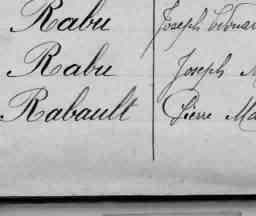 Rabu Joseph Edouar
Rabu Joseph M
Rabault Pierre Ma